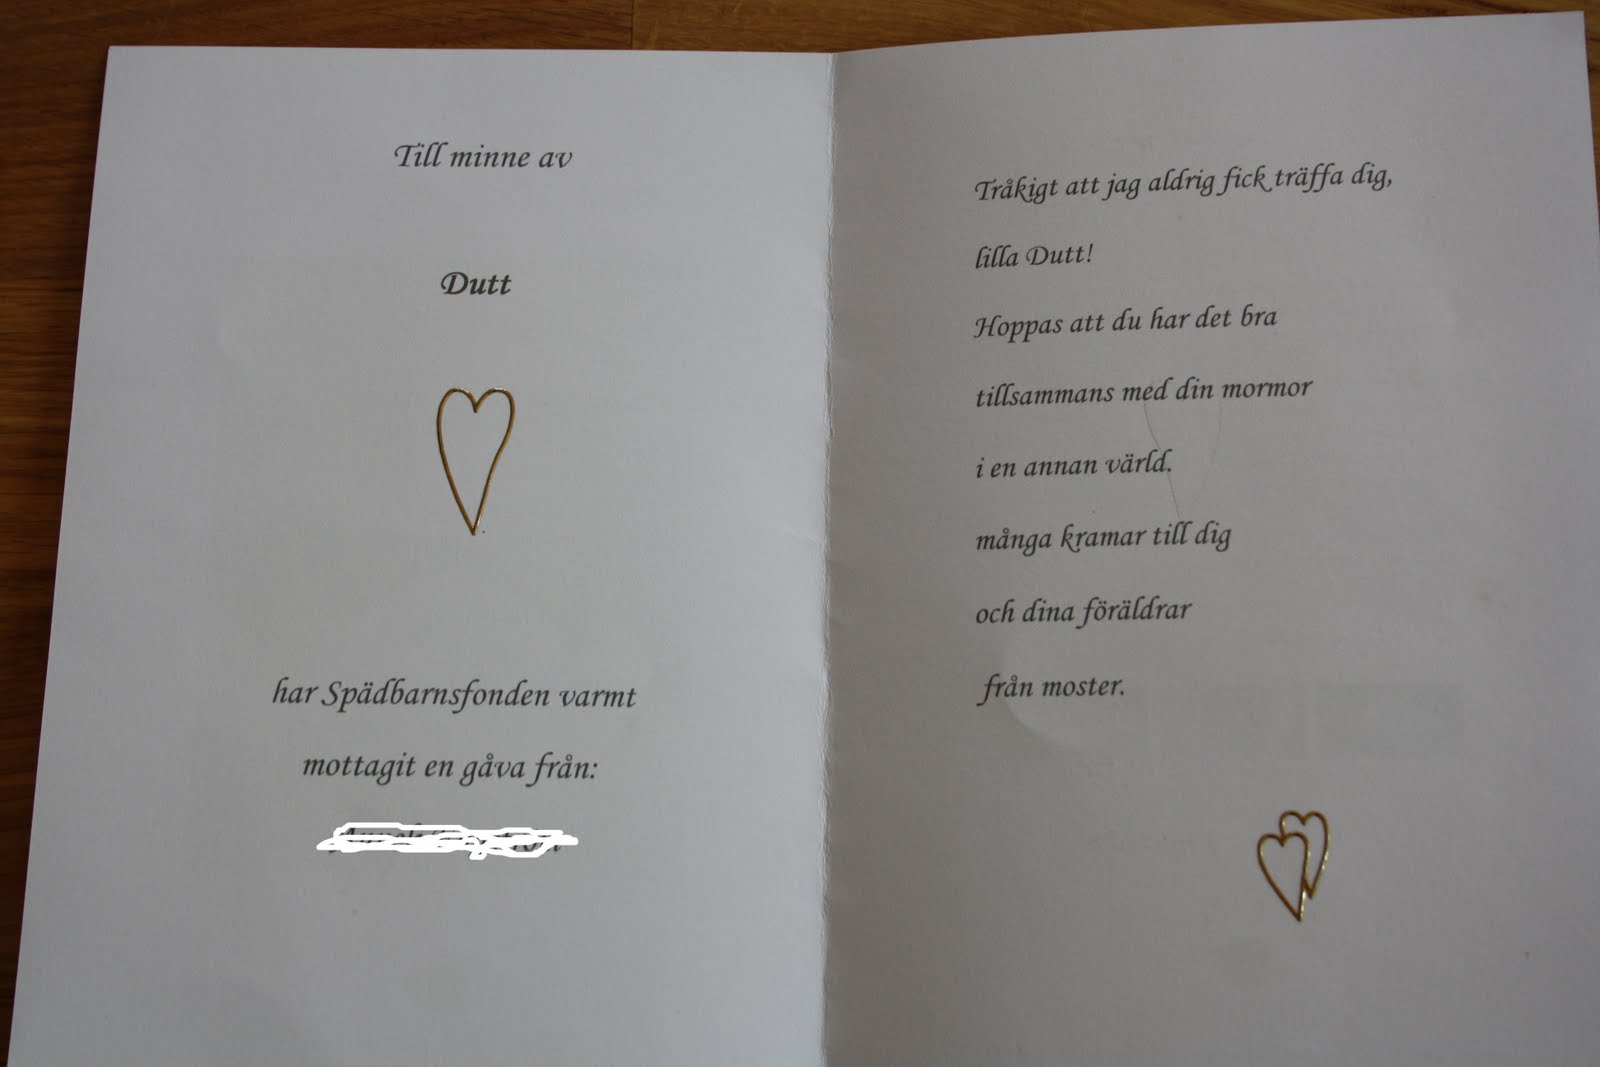 Till minne av
Dutt
har Spädbarnsfonden varmt
mottagit en gåva från:
Tråkigt att jag aldrig fick träffa dig,
lilla Dutt!
Hoppas att du har det bra
tillsammans med din mormor
i en annan värld.
många kramar till dig
och dina föräldrar
från moster.